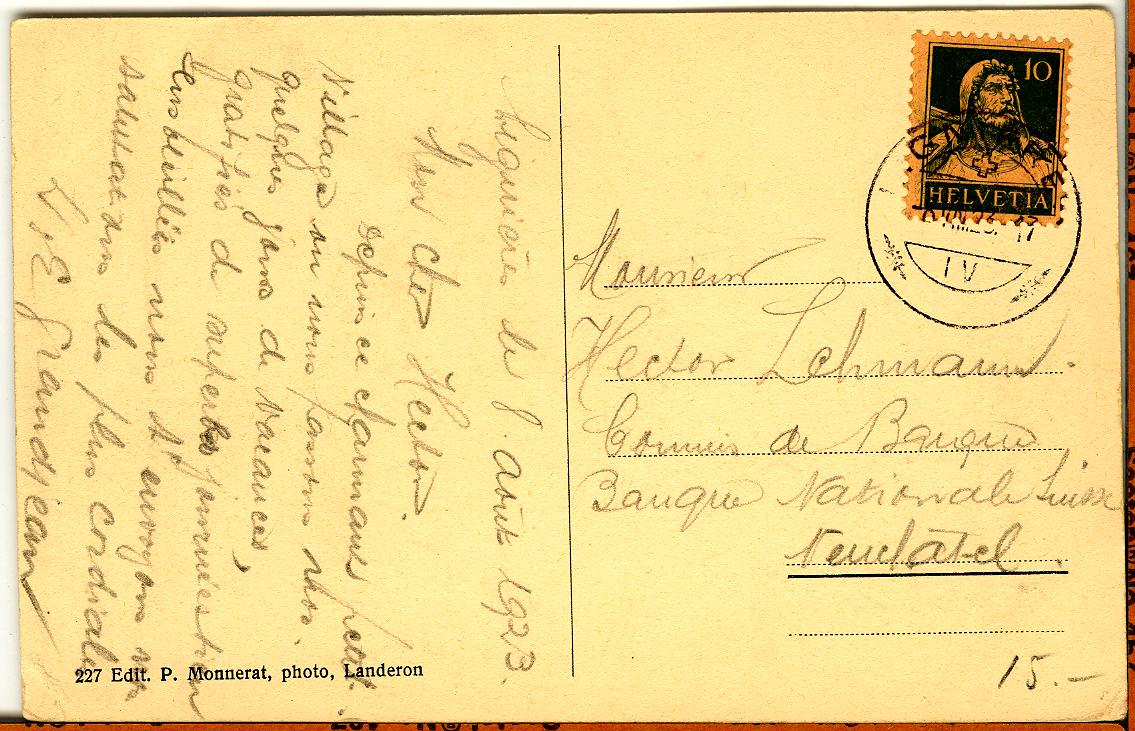 Lignières le 8 août 1923.
Mon cher Hector.
Depuis ce charmant petit
Village où nous passons nos
quelques jours de vacances,
gratifiés de superbes journées bien
ensoleillées nous t'envoyons nos
salutations les plus cordiales
Grandjean
227 Edit. P. Monnerat, photo, Landeron
10
HELVETIA
IV
Monsieur
Hector Lehmann.
Commis de Banque
Banque Nationale Suisse
Neuchâtel.
15.-